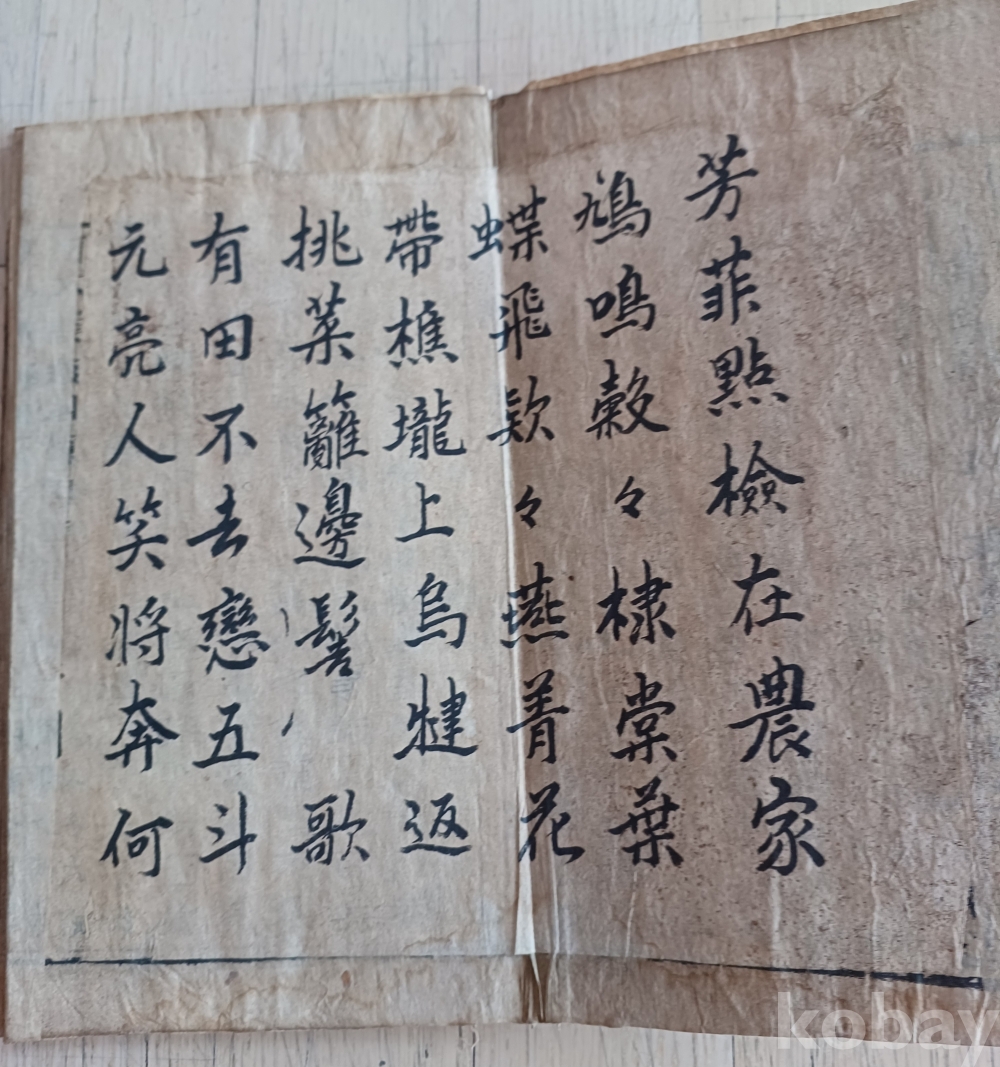 芳菲點檢在農家
鳩鳴穀々棣棠葉
蝶飛欵々燕菁花
帶樵壠上烏犍返
挑菜籬邊髻歌
有田不去戀五斗
元亮人笑將奔何
kobay